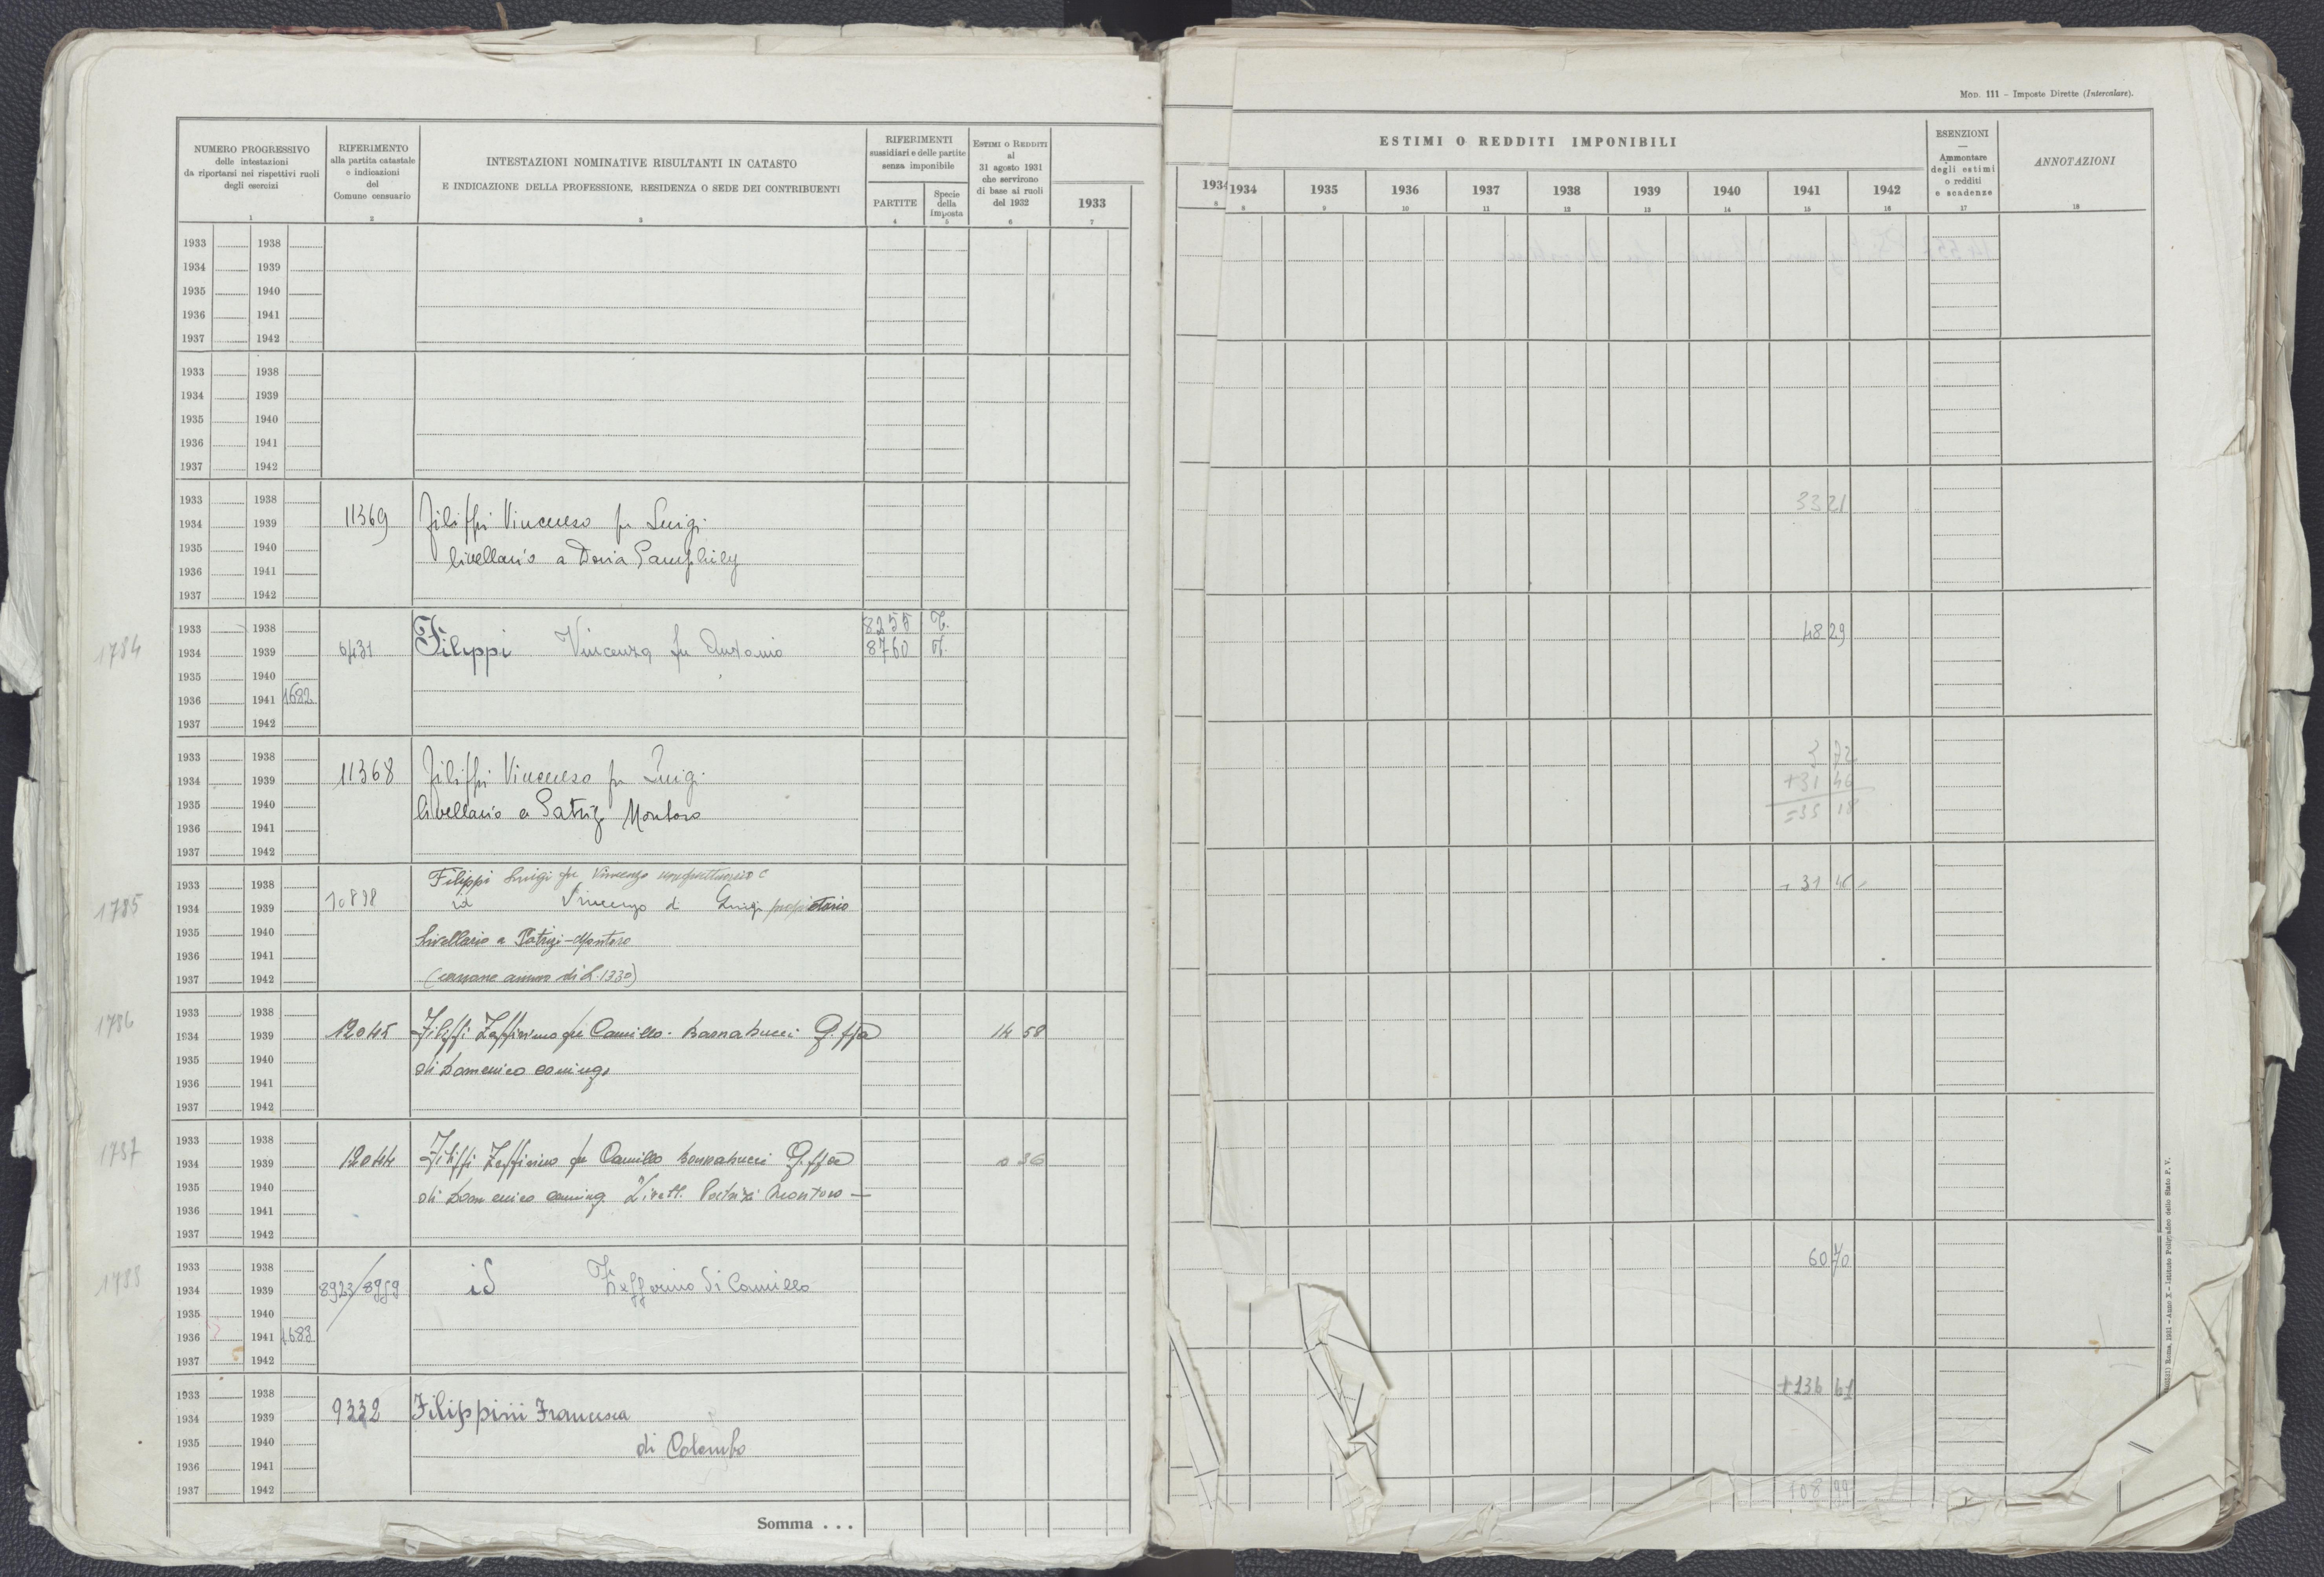 MOD. 111 – Imposte Dirette (Intercalare).
NUMERO PROGRESSIVO
delle intestazioni
da riportarsi nei rispettivi ruoli
degli esercizi
1
RIFERIMENTO
alla partita catastale
e indicazioni
del
Comune censuario
2
INTESTAZIONI NOMINATIVE RISULTANTI IN CATASTO
E INDICAZIONE DELLA PROFESSIONE, RESIDENZA O SEDE DEI CONTRIBUENTI
3
RIFERIMENTI
sussidiari e delle partite
senza imponibile
PARTITE
4
Specie
della
Imposta
5
ESTIMI O REDDITI
al
31 agosto 1931
che servirono
di base ai ruoli
del 1932
6
1933
7
1934
8
ESTIMI O REDDITI IMPONIBILI
1934 1935 1936 1937 1938 1939 1940 1941 1942
8 9 10 11 12 13 14 15 16
ESENZIONI
—
Ammontare
degli estimi
o redditi
e scadenze
17
ANNOTAZIONI
18
1933 1938
1934 1939
1935 1940
1936 1941
1937 1942
1933 1938
1934 1939
1935 1940
1936 1941
1937 1942
1933 1938 33 21
1934 1939 11369 Filippi Vincenzo fu Luigi
1935 1940 livellario a Doria Pamphily
1936 1941
1937 1942
1933 1938 8255 T. 48 29
1784 1934 1939 6431 Filippi Vincenza fu Antonio 8760 T.
1935 1940
1936 1941 1682
1937 1942
1933 1938 3 72
1934 1939 11368 Filippi Vincenzo fu Luigi +31 46
1935 1940 livellario a Patrizi Montoro =35 18
1936 1941
1937 1942
1933 1938 Filippi Luigi fu Vincenzo usufruttuario e 31 46
1785 1934 1939 10898 id Vincenzo di Luigi proprietario
1935 1940 livellario a Patrizi-Montoro
1936 1941
1937 1942 (canone annuo di L. 1330)
1933 1938
1786 1934 1939 12045 Filippi Zeffirino fu Camillo - Barnabucci G.ffa 14 58
1935 1940 di Domenico coniugi
1936 1941
1937 1942
1933 1938
1787 1934 1939 12044 Filippi Zeffirino fu Camillo Barnabucci G.ffa 0 36
1935 1940 di Domenico coniug. Livell. Patrizi Montoro —
1936 1941
1937 1942
1933 1938 60 70
1788 1934 1939 8923/8959 id Zefferino di Camillo
1935 1940
1936 1941 1683
1937 1942
1933 1938 +136 61
1934 1939 9332 Filippini Francesca
1935 1940 di Colombo
1936 1941
1937 1942 108 99
Somma . . .
Roma, 1931 – Anno X – Istituto Poligrafico dello Stato P. V.